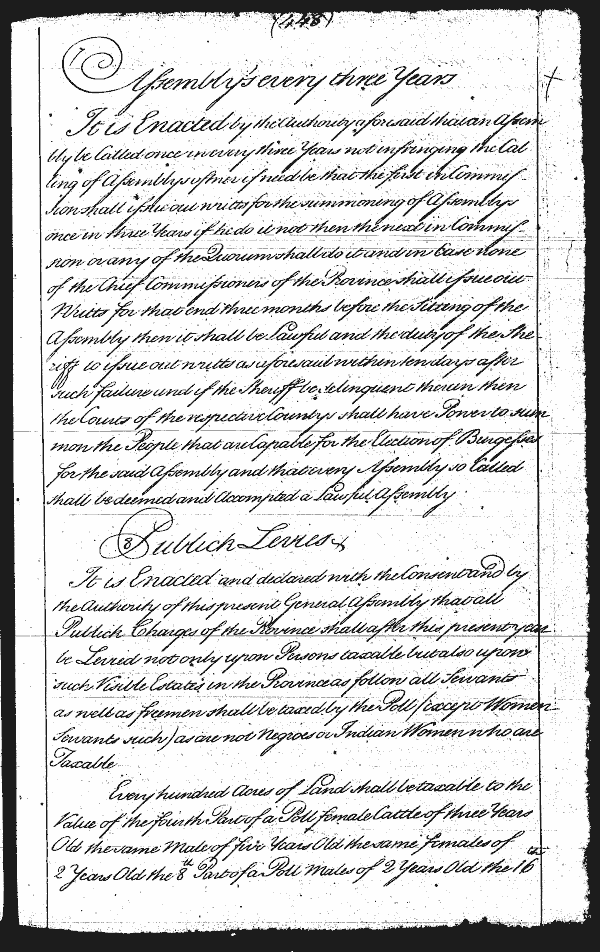 (448)
7
Assembly's every three Years
It is Enacted by the Authority aforesaid that an Assem
bly be Called once in every three Years not infringing the Cal
ling of Assemblys oftner if need be that the first in Commis
sion shall issue out writts for the summoning of Assemblys
once in three Years if he do it not then the next in Commis
sion or any of the Quorum shall do it and in Case none
of the Chief Commissioners of the Province shall issue out
Writts for that end three months before the Sitting of the
Assembly then it shall be Lawful and the duty of the She
riff to issue out writts as aforesaid within ten days after
such failure and if the Sheriff be delinquent therein then
the Courts of the respective Countys shall have Power to sum
mon the People that are Capable for the Election of Burgesses
for the said Assembly and that every Assembly so Called
shall be deemed and Accompted a Lawful Assembly
8 Publich Levies
It is Enacted and declared with the Consent and by
the Authority of this present General Assembly that all
Publich Charges of the Province shall after this present year
be Levied not only upon Persons taxable but also upon
such Visible Estates in the Province as follow all Servants
as well as freemen shall be taxed by the Poll (except Women
Servants such) as are not Negroes or Indian Women who are
Taxable
Every hundred Acres of Land shall be taxable to the
Value of the fourth Part of a Poll female Cattle of three Years
Old the same Male of five Years Old the same females of
2 Years Old the 8th Part of a Poll Males of 2 Years Old the 16th